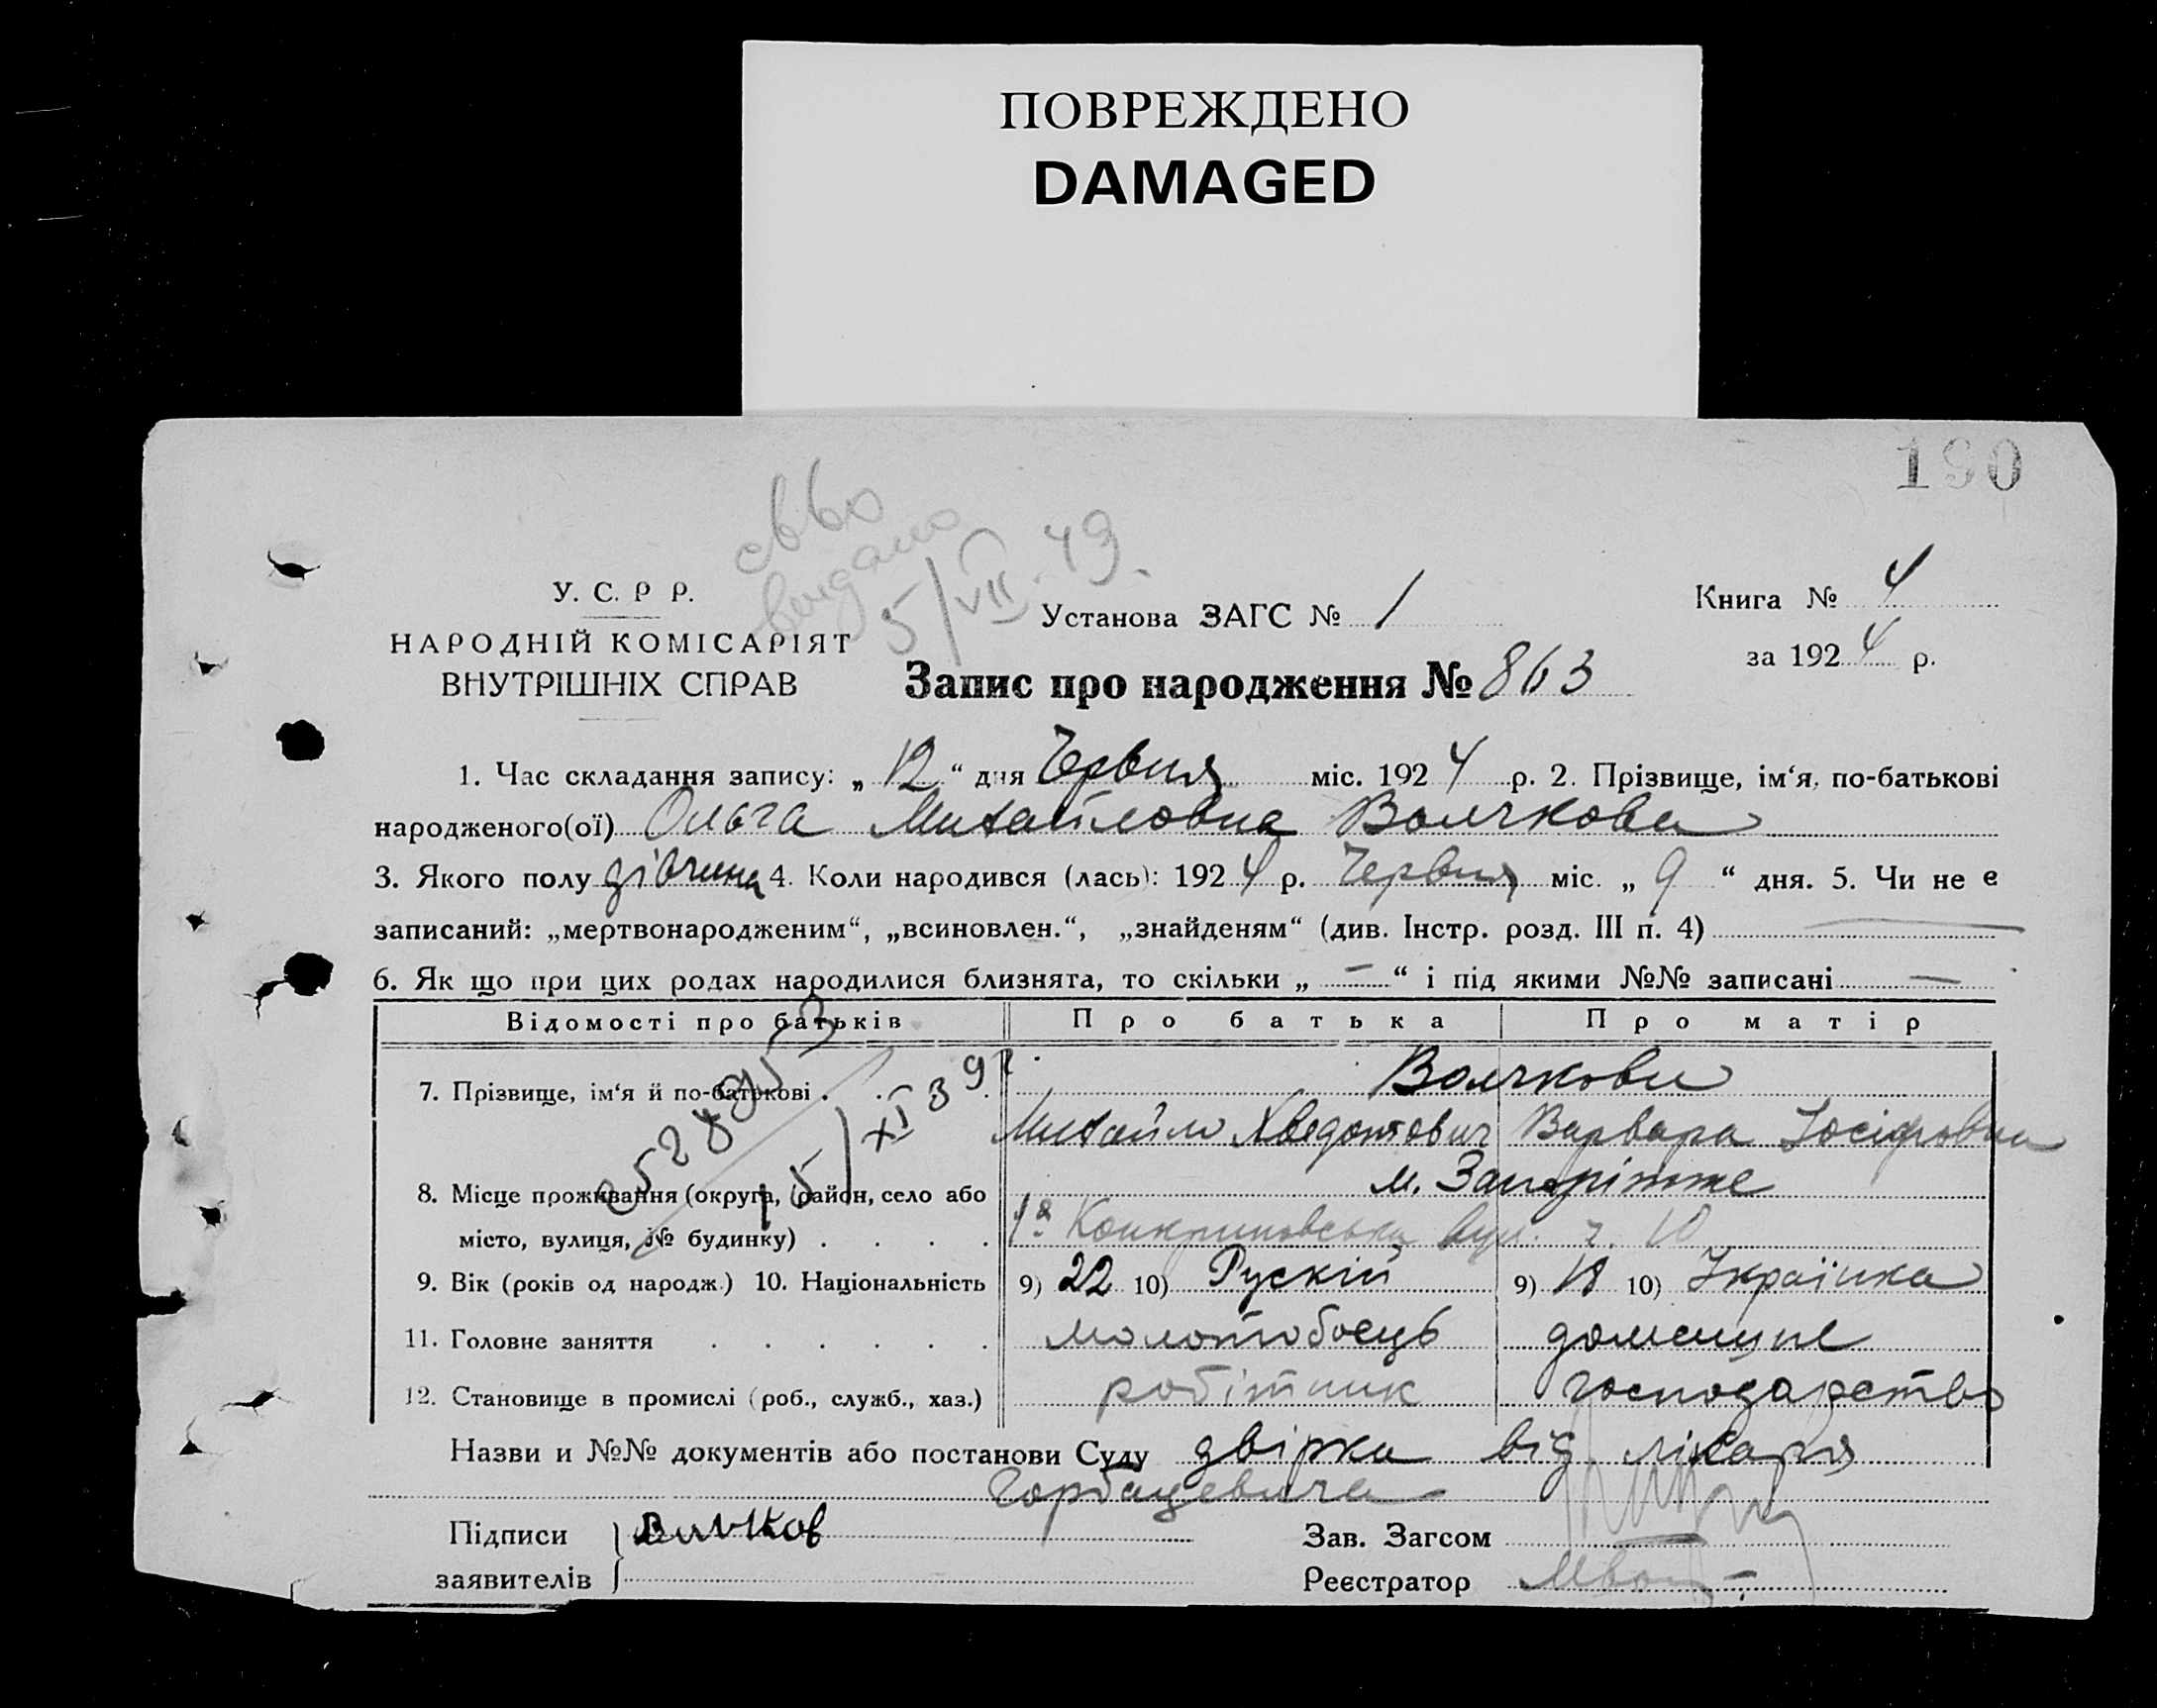 ПОВРЕЖДЕНО
DAMAGED
190
У. С. Р Р.
НАРОДНІЙ КОМІСАРІЯТ
ВНУТРІШНІХ СПРАВ
5/VII.49.
Установа ЗАГС № 1
Книга № 4
за 1924 р.
Запис про народження № 863
1. Час складання запису: „12“ дня Червня міс. 1924 р. 2. Прізвище, ім‘я, по-батькові
народженого(ої) Ольга Михайловна Волчкова
3. Якого полу дівчина 4. Коли народився (лась): 1924 р. Червня міс. „9“ дня. 5. Чи не є
записаний: „мертвонародженим“, „всиновлен.“, „знайденям“ (див. Інстр. розд. III п. 4) —
6. Як що при цих родах народилися близнята, то скільки „—“ і під якими №№ записані —
Відомості про батьків Про батька Про матір
7. Прізвище, ім‘я й по-батькові . . . . Волчкови
Михайло Хведотович Варвара Іосіфовна
15/XI 39
8. Місце проживання (округа, район, село або м. Запоріжже
місто, вулиця, № будинку) . . . . вул. ч. 10
9. Вік (років од народж.) 10. Національність 9) 22 10) Рускій 9) 18 10) Українка
11. Головне заняття . . . . . . молотобоець домашне
12. Становище в промислі (роб., служб., хаз.) робітник господарство
Назви и №№ документів або постанови Суду двірка від лікаря
Горбацевича
Підписи заявителів Волчков
Зав. Загсом
Реєстратор